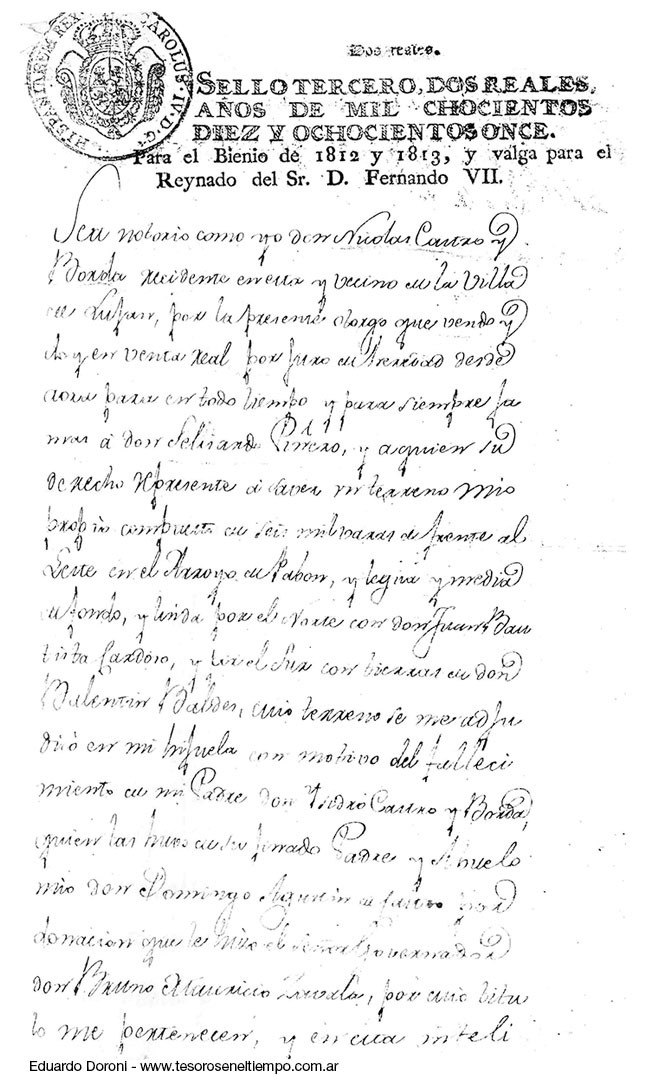 HISPANIARUM REX CAROLUS IV D G
Dos reales.
SELLO TERCERO, DOS REALES,
AÑOS DE MIL OCHOCIENTOS
DIEZ Y OCHOCIENTOS ONCE.
Para el Bienio de 1812 y 1813, y valga para el
Reynado del Sr. D. Fernando VII.
Sea notorio como yo don Nicolas Castro y
Borda recidente en esta y vecino de la Villa
de Lujan, por la presente otorgo que vendo y
doy en venta real por juro de heredad desde
aora para en todo tiempo y para siempre ja
mas à don Felisardo Piñero, y a quien su
derecho represente à saver un terreno mio
propio compuesto de seis mil varas de frente al
Leste en el Arroyo de Pabon, y legua y media
de fondo, y linda por el Norte con don Juan Bau
tista Cardoso, y por el Sur con tierras de don
Balentin Baldes, cuio terreno se me adju
dicò en mi hijuela con motivo del falleci
miento de mi Padre don Ysidro Castro y Borda,
quien las huvo de su finado Padre y Abuelo
mio don Domingo Agustin de Castro por
donacion que le hizo el señor Governador
don Bruno Mauricio Zavala, por cuio titu
lo me pertenecen, y en esta inteli
Eduardo Doroni - www.tesoroseneltiempo.com.ar